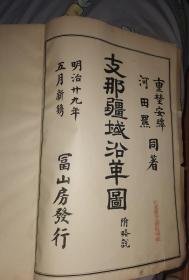 重野安繹
河田羆 同著
支那疆域沿革圖 附略説
明治廿九年
五月新鐫
冨山房發行